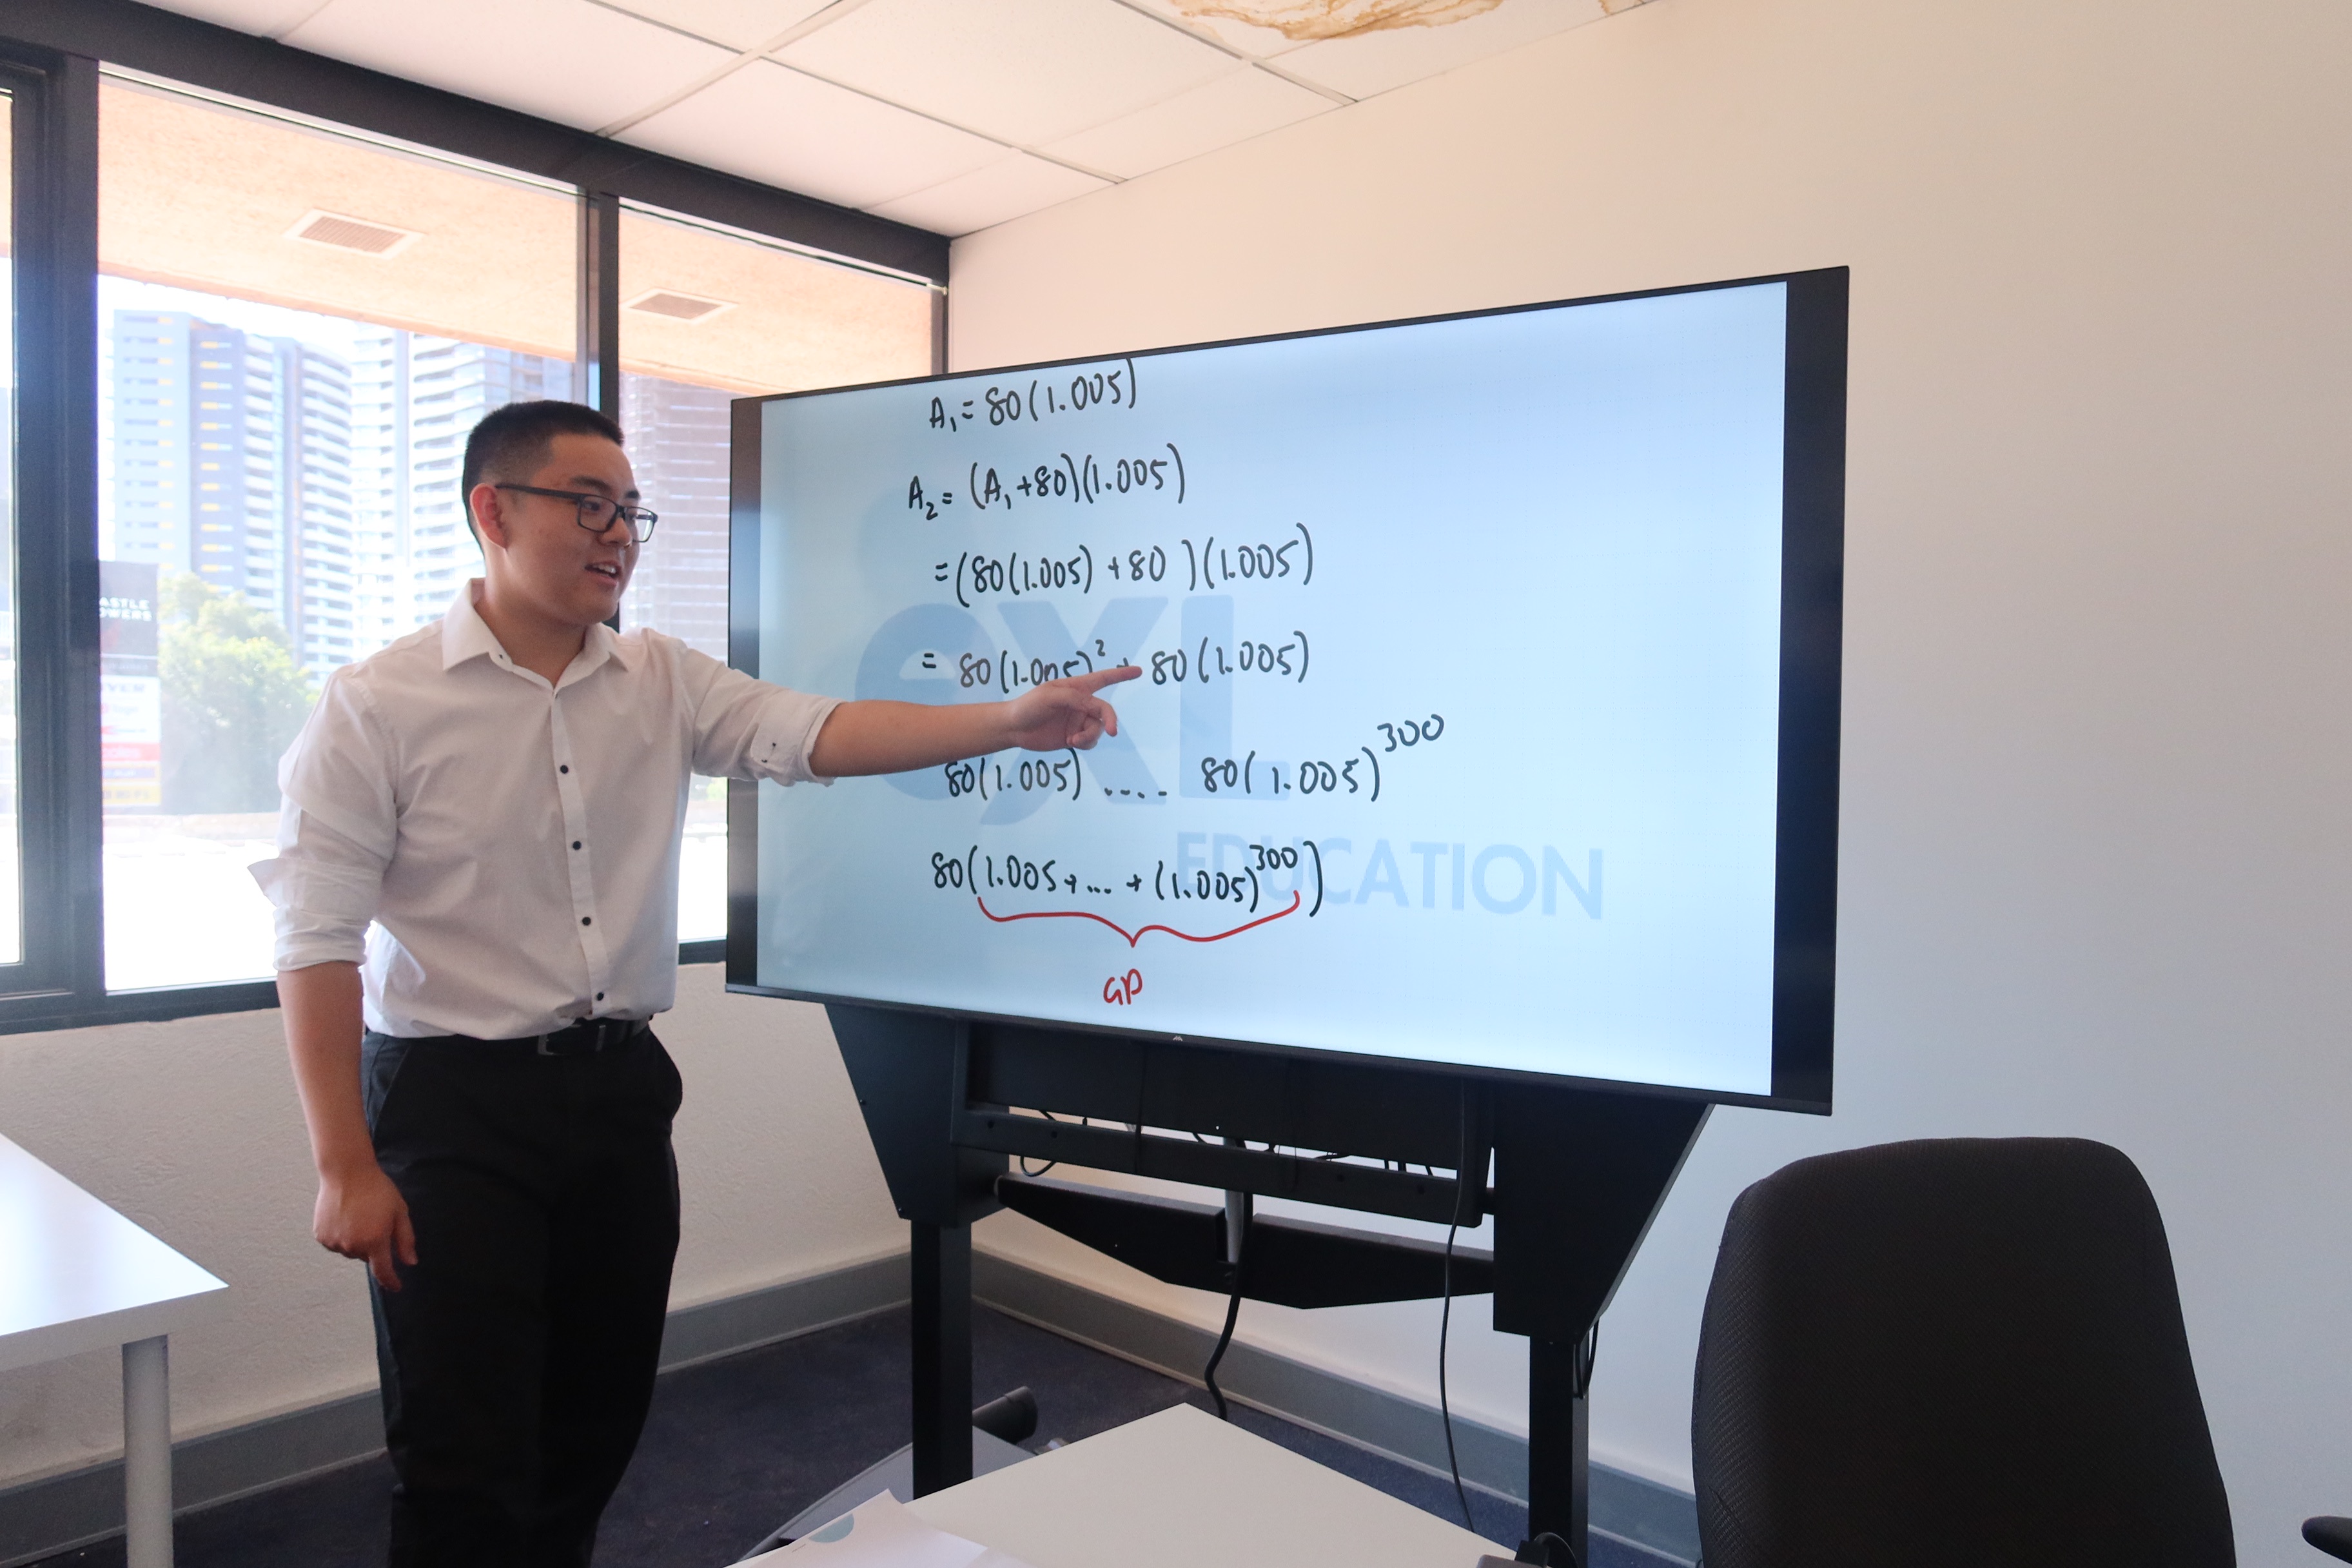 A₁ = 80(1.005)
A₂ = (A₁+80)(1.005)
= (80(1.005) + 80 )(1.005)
= 80(1.005)² + 80(1.005)
80(1.005) .... 80(1.005)³⁰⁰
80(1.005 + ... + (1.005)³⁰⁰)
GP
eXL
EDUCATION
ASTLE
OWERS